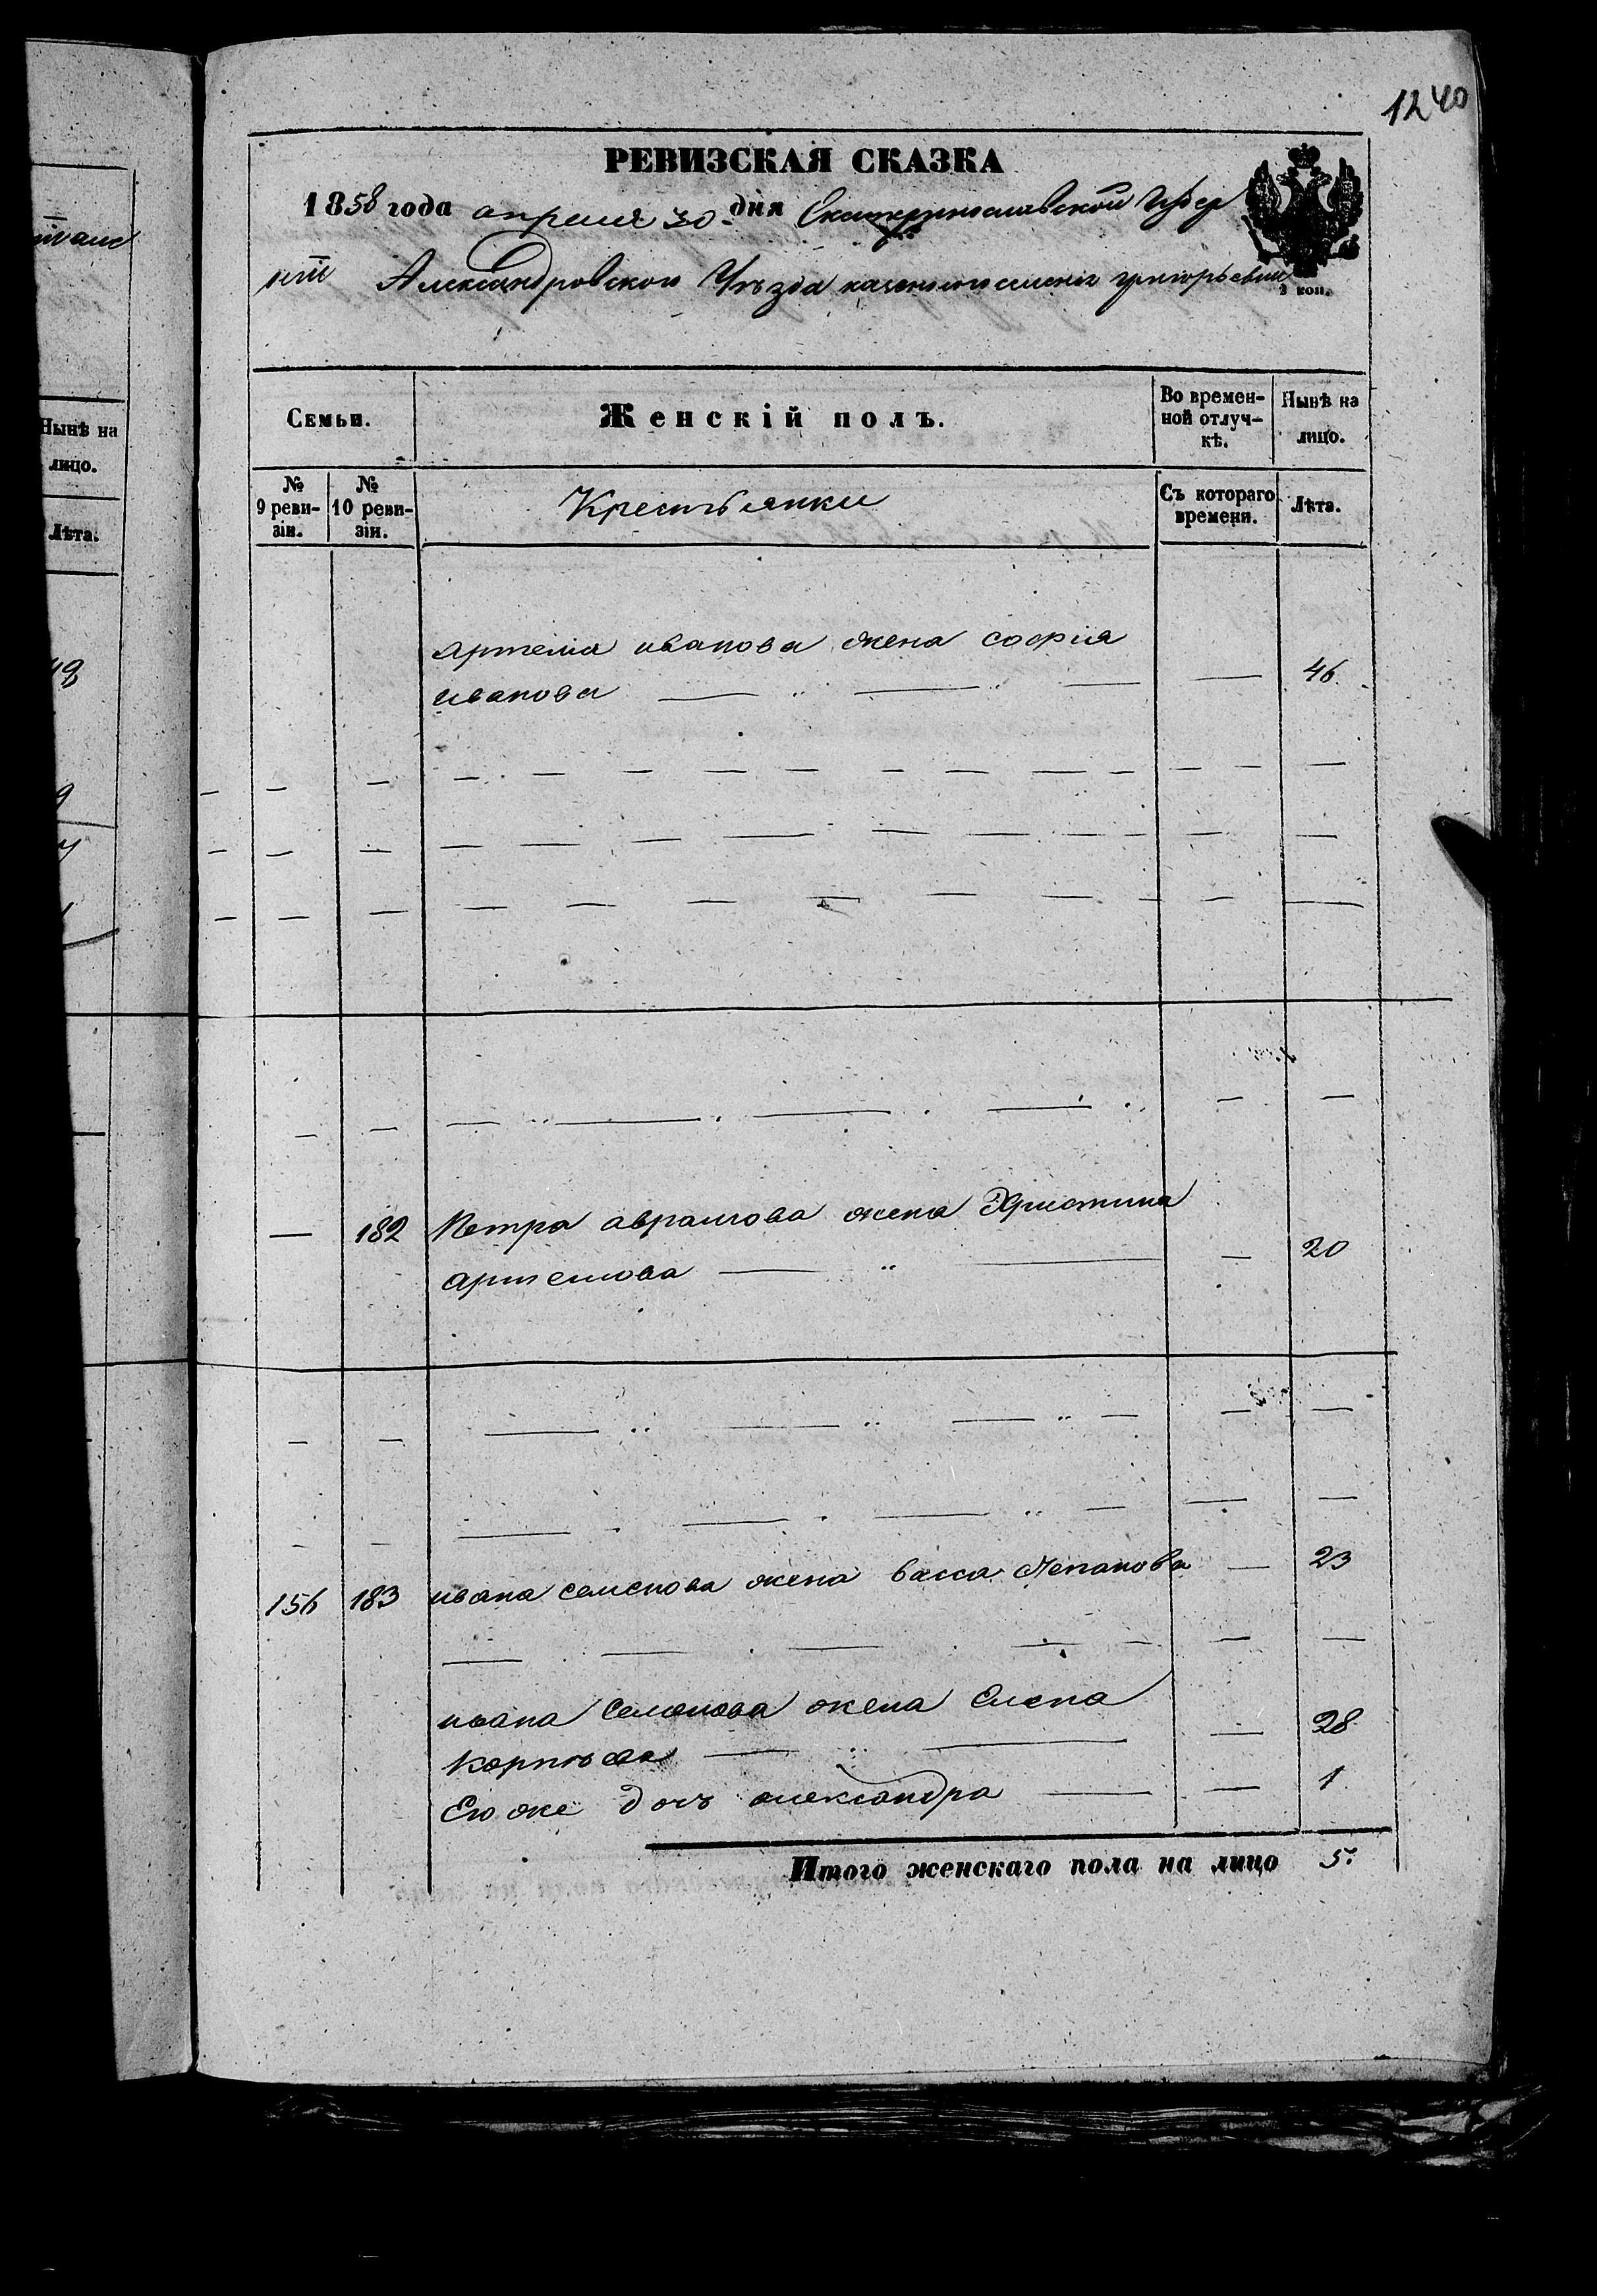 1240
РЕВИЗСКАЯ СКАЗКА
1858 года апреля 30 дня Екатеринославской Губер
ніи Александровскои Уѣзда казенного селенія григорьевки
3 коп.
Семьи.
Женскій полъ.
Во времен-
ной отлуч-
кѣ.
Нынѣ на
лицо.
№
9 реви-
зіи.
№
10 реви-
зіи.
Крестьянки
Съ котораго
времени.
Лѣта.
артема иванова жена софія
иванова — " — " — — 46
— 182 Петра аврамова жена Христина
артемова — " — — 20
156 183 ивана семенова жена васса Степанова — 23
ивана Семенова жена Елена
Корнѣева — " — — 28
Его же дочь александра — — 1
Итого женскаго пола на лицо 5.
Нынѣ на
лицо.
Лѣта.